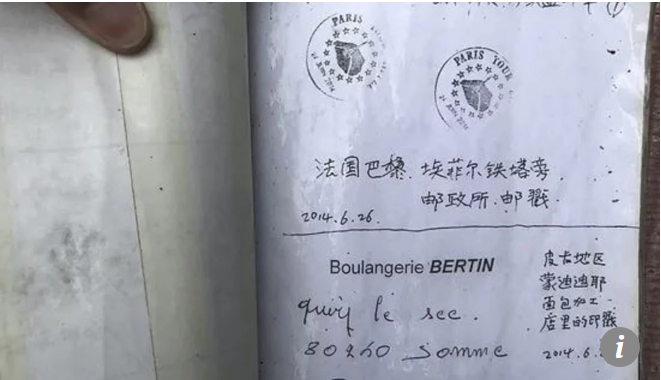 PARIS
PARIS TOUR
法国巴黎.埃菲尔铁塔旁
邮政所.邮戳.
2014.6.26.
Boulangerie BERTIN
皮卡地区
蒙迪迪耶
面包加工
店里的印戳
2014.6.
le sec.
Somme
i